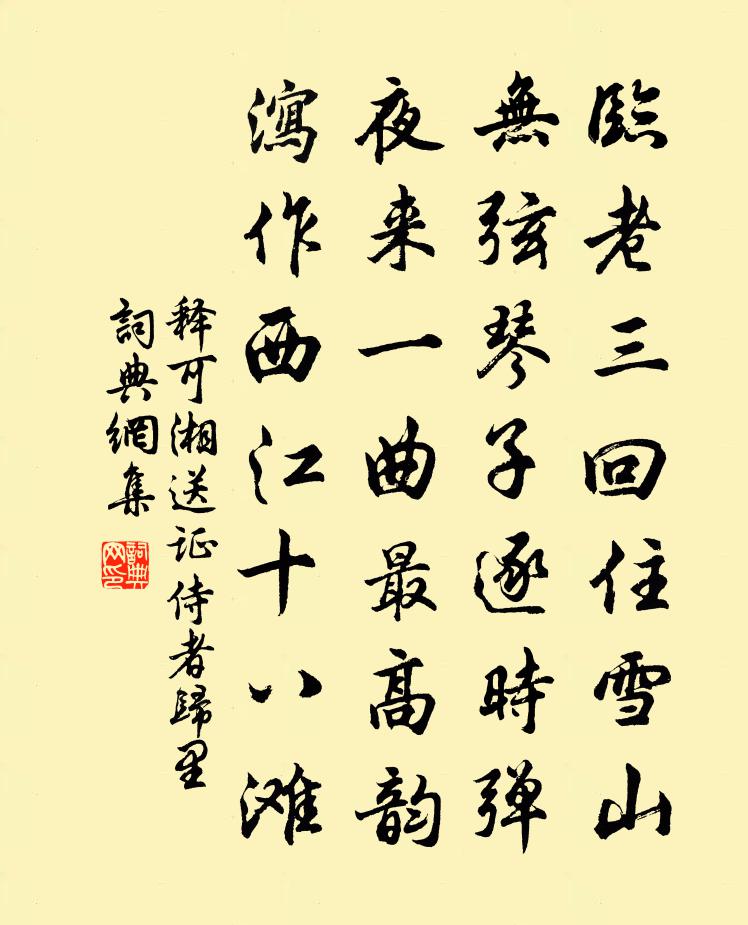 臨老三回住雪山
無弦琴子逐時弹
夜来一曲最高韵
瀉作西江十八滩
釋可湘送证侍者歸里
詞典網集
詞典網印